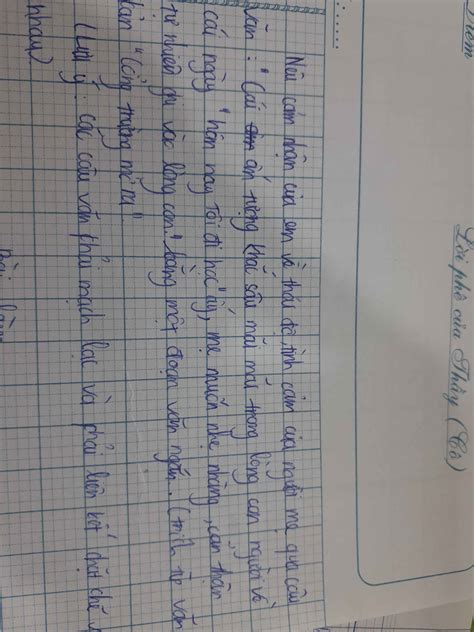 Điểm
Lời phê của Thầy (Cô)
Nêu cảm nhận của em về thái độ, tình cảm của người mẹ qua câu
văn: "Cái ấn tượng khắc sâu mãi mãi trong lòng con người về
cái ngày "hôm nay tôi đi học" ấy, mẹ muốn nhẹ nhàng, cẩn thận
tự nhiên ghi vào lòng con" bằng một đoạn văn ngắn. (trích từ văn
bản "Cổng trường mở ra"
(Lưu ý: các câu văn phải mạch lạc và phải liên kết chặt chẽ
nhau)
Bài làm